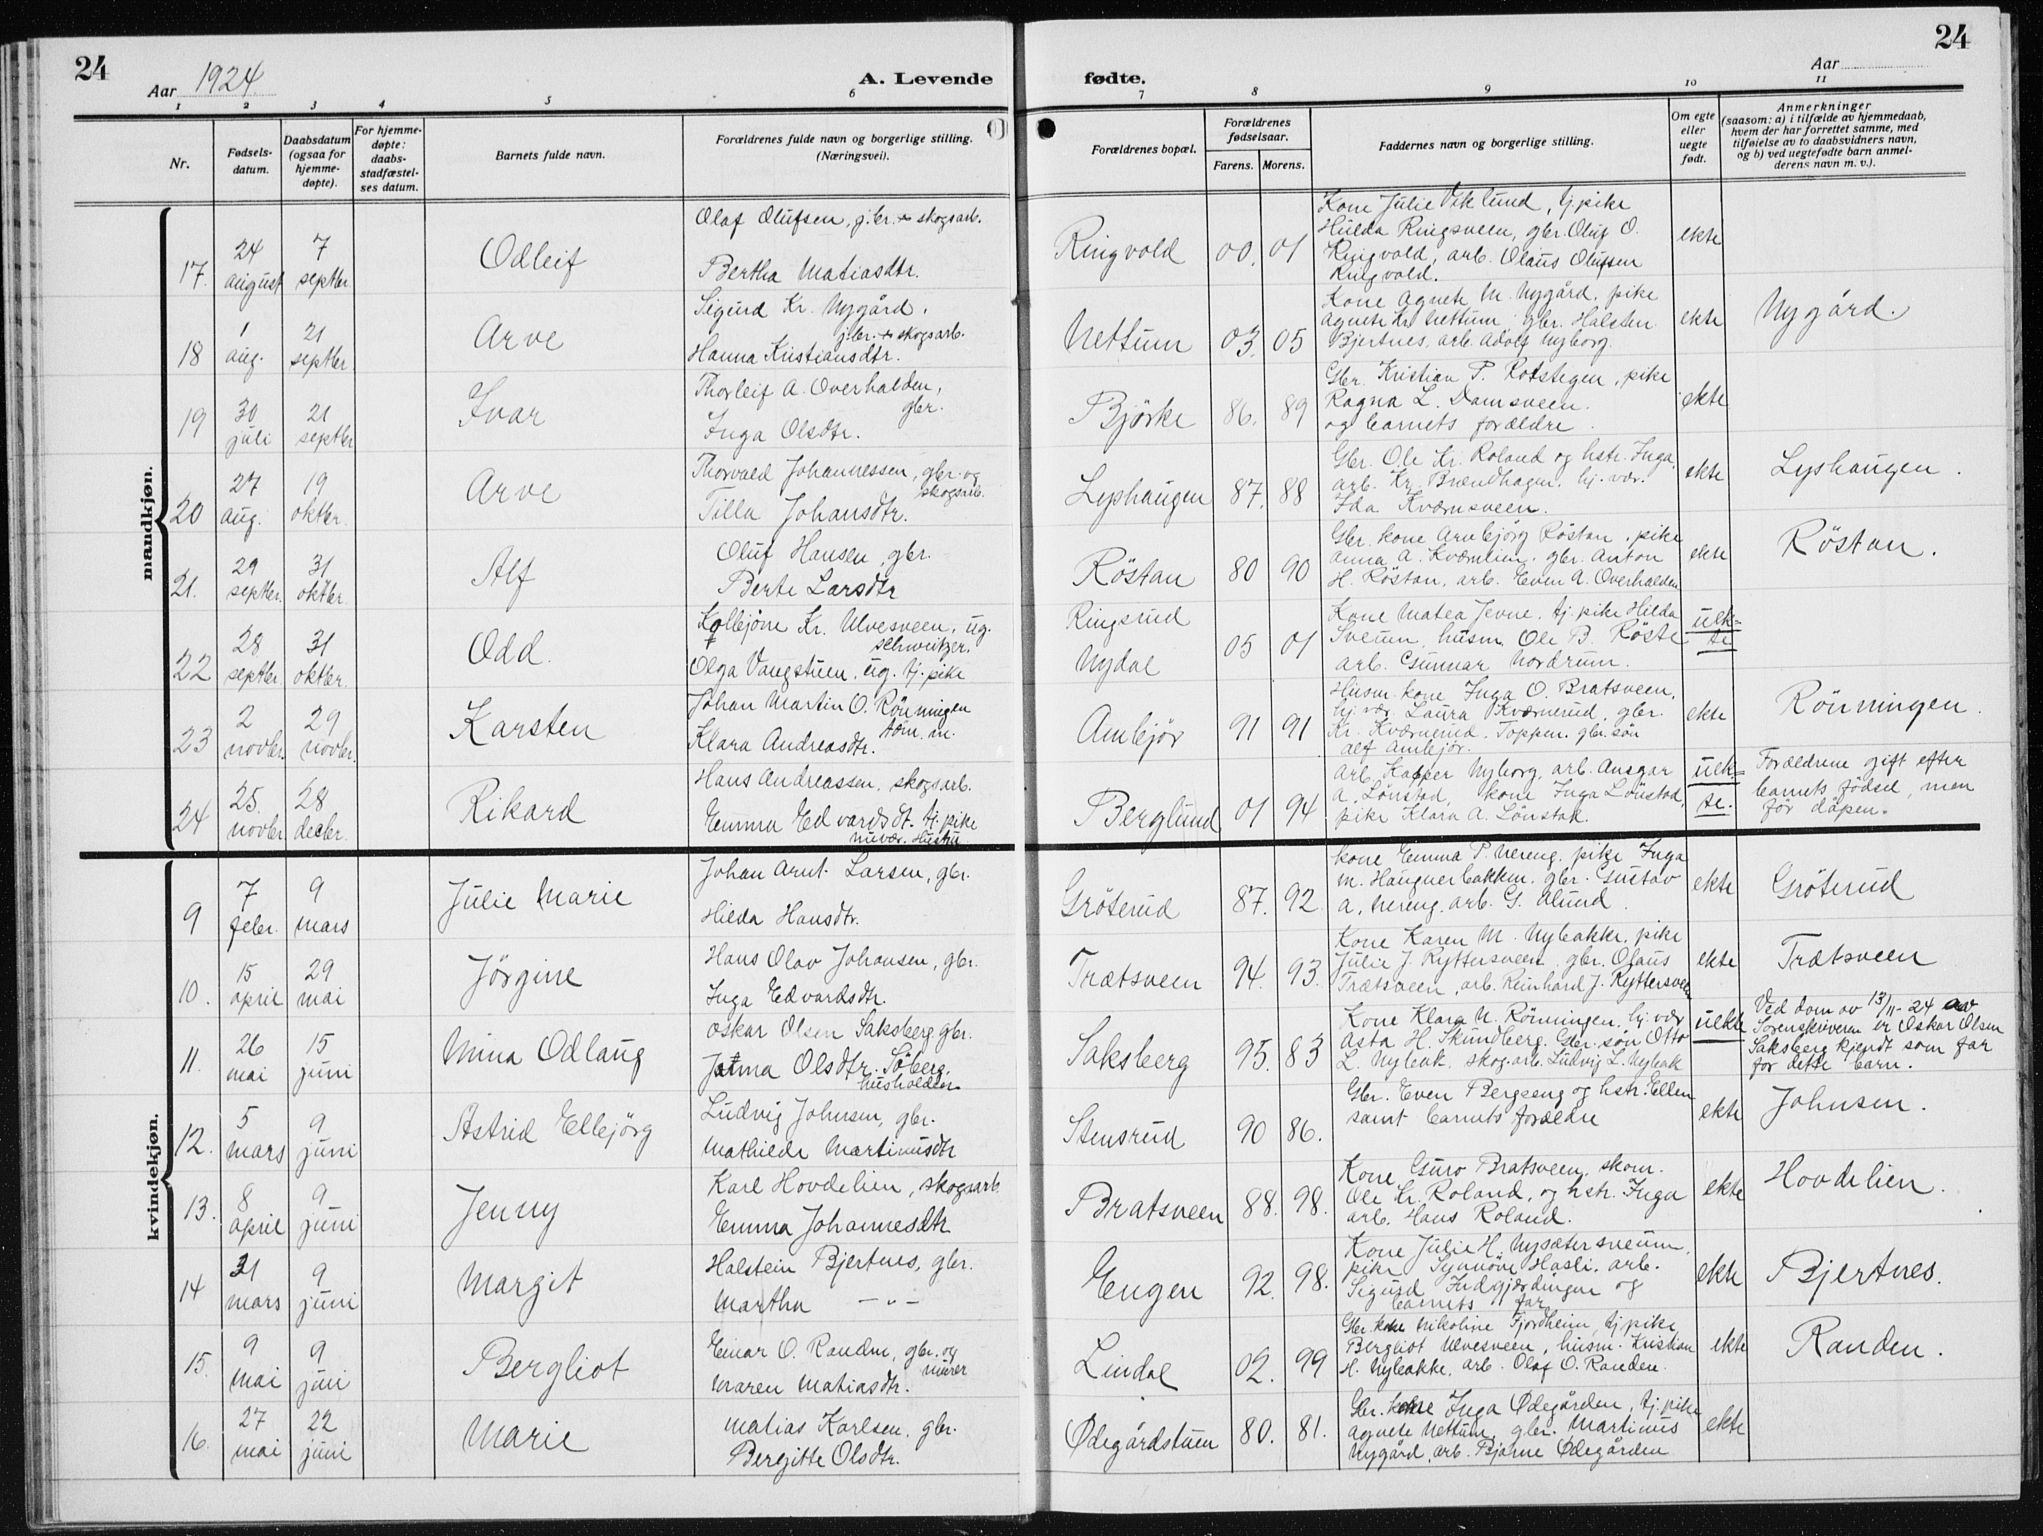 24
Aar 1924.
A. Levende
1 2 3 4 5 6
Nr.
Fødsels-
datum.
Daabsdatum
(ogsaa for
hjemme-
døpte).
For hjemme-
døpte:
daabs-
stadfæstel-
ses datum.
Barnets fulde navn.
Forældrenes fulde navn og borgerlige stilling.
(Næringsvei).
fødte.
24
Aar
7 8 9 10 11
Forældrenes bopæl.
Forældrenes
fødselsaar.
Farens. Morens.
Faddernes navn og borgerlige stilling.
Om egte
eller
uegte
født.
Anmerkninger
(saasom: a) i tilfælde av hjemmedaab,
hvem der har forrettet samme, med
tilføielse av to daabsvidners navn,
og b) ved uegtefødte barn anmel-
derens navn m. v.).
mandkjøn.
17. 24 august 7 septbr. Odleif
Olaf Olufsen, gbr. + skogsarb.
Bertha Matiasdtr.
Ringvold 00. 01
Kone Julie Viklund, tj. pike
Hulda Ringsveen, gbr. Oluf O.
Ringvold, arb. Olaus Olufsen
Ringvold.
ekte
18 1 aug. 21 septbr. Arve
Sigurd Kr. Nygård,
gbr. + skogsarb.
Hanna Kristiansdtr.
Nettum 03. 05
Kone Agnete M. Nygård, pike
Agnete Kr. Nettum, gbr. Halsten
Bjertnes, arb. Adolf Nyborg.
ekte
Nygård.
19 30 juli 21 septbr Ivar
Thorleif A. Overhalden,
gbr.
Inga Olsdtr.
Björke 86. 89
Gbr. Kristian P. Rotstegen, pike
Ragna L. Damsveen.
og barnets forældre.
ekte
20 27 aug. 19 oktbr. Arve
Thorvald Johannessen, gbr. og
skogsarb.
Tilla Johansdtr.
Lyshaugen 87. 88
Gbr. Ole Kr. Roland og hstr. Inga,
arb. Kr. Brændhagen. hj. vær.
Ida Kværnsveen.
ekte
Lyshaugen.
21. 29 septbr. 31 oktbr. Alf
Oluf Hansen, gbr.
Berte Larsdtr
Röstan 80 90
Gbr. kone Arnbjörg Röstan, pike
Anna A. Kværnlien. gbr. Anton
H. Röstan, arb. Even A. Overhalden
ekte
Röstan.
22 28 septbr. 31 oktbr. Odd.
Kolbjöne Kr. Ulvesveen, ug.
schweitzer.
Olga Vangstuen, ug. tj. pike
Ringsrud
Nydal 05 01
Kone Matea Jevne, tj. pike Hilda
Sveum, husm. Ole B. Röste
arb. Gunnar Nordrum.
uek-
te
23 2 novbr. 29 novbr. Karsten
Johan Martin O. Rönningen
töm. m.
Klara Andreasdtr.
Amlejör 91 91
Husm. kone Inga O. Bratsveen,
hj. vær. Laura Kværnerud, gbr.
Kr. Kværnerud. Toppen. gbr. sön
Alf Amlejör.
ekte
Rönningen.
24 25. novbr. 28 decbr. Rikard
Hans Andreassen, skogsarb.
Emma Edvardsdt. tj. pike
nuvær. Hustru.
Berglund 01 94
arb. Kasper Nyborg, arb. Ansgar
A. Lönstad, kone Inga Lönstad,
pike Klara A. Lönstad.
uek-
te.
Forældrene gift efter
barnets födsel, men
för dåpen.
kvindekjøn.
9 7 febr. 9 mars Julie Marie
Johan Arnt. Larsen, gbr.
Hilda Hansdtr.
Gröterud 87. 92.
kone Emma P. Nereng. pike Inga
M. Haugnerbakken. gbr. Gustav
A. Nereng. arb. G. Alund.
ekte
Gröterud
10. 15 april 29 mai Jörgine
Hans Olav Johansen, gbr.
Inga Edvardsdtr.
Trætsveen 94. 93.
Kone Karen M. Nybakke, pike
Julie J. Ryttersveen. gbr. Olaus
Trætsveen, arb. Reinhard J. Ryttersveen
ekte
Trætsveen
11. 26 mai 15 juni Mina Odlaug
Oskar Olsen Saksberg. gbr.
Jetma Olsdtr. Söberg.
husholderske
Saksberg 95. 83
Kone Klara N. Rönningen, hj. vær
Asta H. Skundberg. Gbr. sön Otto
L. Nybak. skog. arb. Ludvig L. Nybak
uekte
Ved dom av 13/11-24 av
Sorenskriveren er Oskar Olsen
Saksberg kjendt som far
for dette barn.
12. 5 mars 9 juni Astrid Ellejörg
Ludvig Johnsen, gbr.
Mathilde Martinusdtr
Stensrud 90 86.
Gbr. Even Bergseng og hstr. Ellen
samt barnets forældre
ekte
Johnsen.
13. 8 april 9 juni Jenny
Karl Hovdelien, skogsarb.
Emma Johannesdtr
Bratsveen 88. 98.
Kone Guro Bratsveen, skom.
Ole Kr. Roland, og hstr. Inga
arb. Hans Roland.
ekte
Hovdelien.
14 31 mars 9 juni Margit
Halstein Bjertnes, gbr.
Martha — " —
Engen 92. 98.
Kone Julie H. Nysætersveum,
pike Synnöve Hasli, arb.
Sigurd Indgjærdingen og
barnets far
ekte
Bjertnes.
15. 9 mai 9 juni Bergliot
Einar O. Randen, gbr. og
murer
Maren Matiasdtr.
Lindal 02. 99
Gbr. kone Nikoline Fjordheim, tj. pike
Bergliot Ulvesveen, husm. Kristian
H. Nybakke, arb. Olaf O. Randen.
ekte
Randen.
16. 27 mai 22 juni Marie
Matias Karlsen, gbr.
Bergitte Olsdtr.
Ødegårdstuen 80. 81.
Gbr. kone Inga Ødegården, tj. pike
Agnete Nettum, gbr. Martinus
Nygård, arb. Bjarne Ødegården
ekte